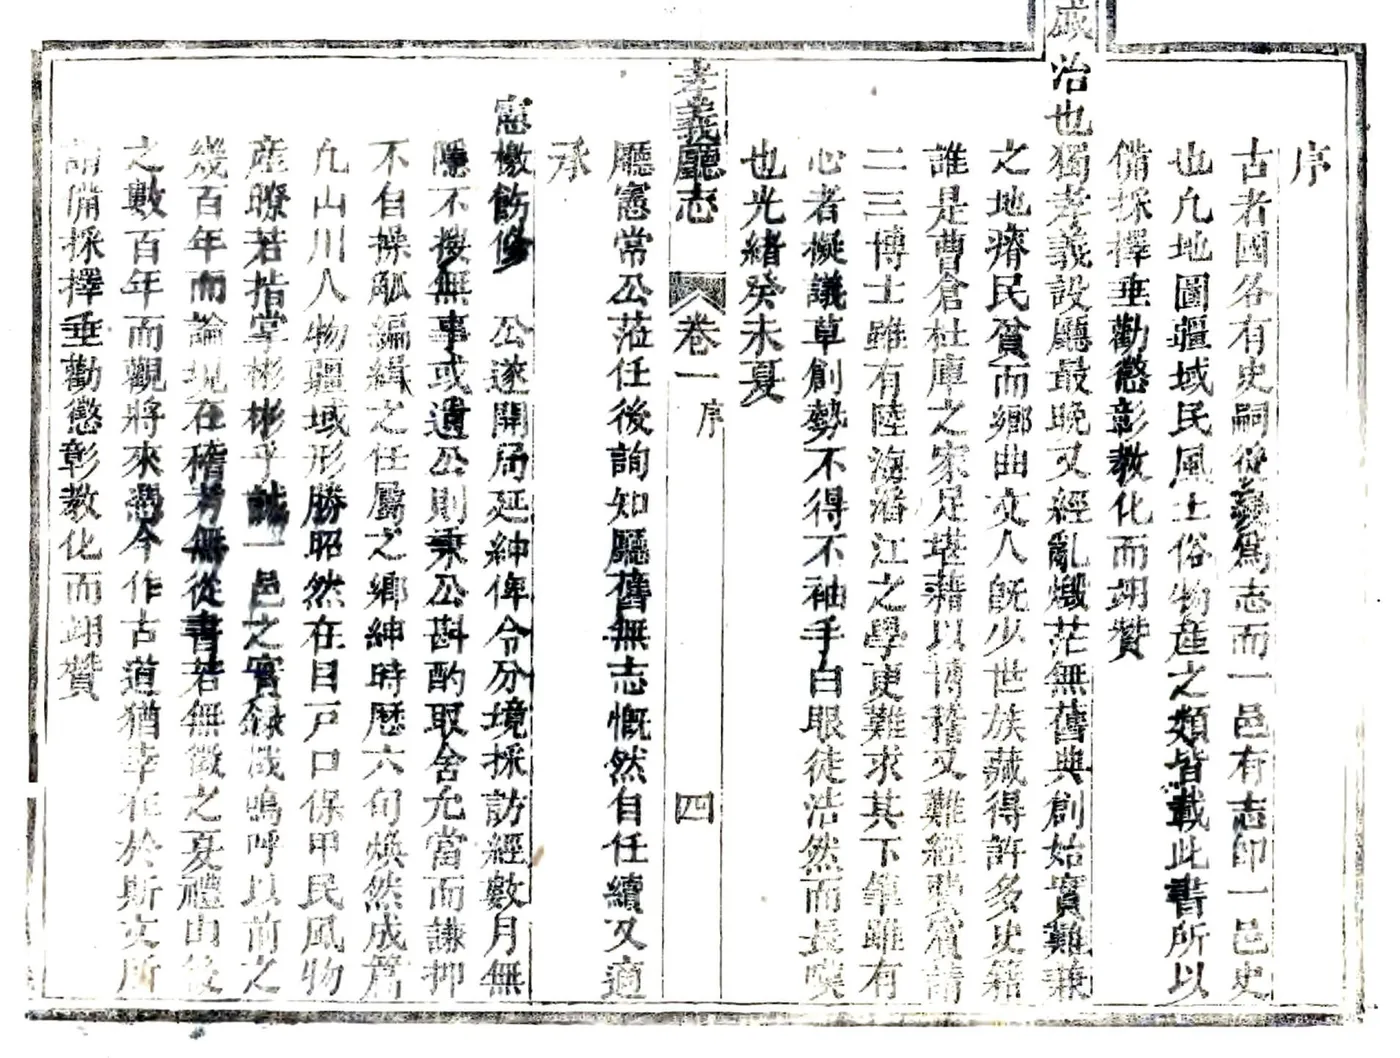 序
古者國各有史嗣從變爲志而一邑有志即一邑史
也凢地圖疆域民風土俗物產之類皆載此書所以
備採擇垂勸懲彰教化而翊贊
盛治也獨孝義設廳最晚又經亂燬茫無舊典創始實難兼
之地瘠民貧而鄉曲文人旣少世族藏得許多史籍
誰是曹倉杜庫之家足堪藉以博稽又難經費賓請
二三博士雖有陸海潘江之學更難求其下筆雖有
心者擬議草創勢不得不袖手白眼徒浩然而長嘆
也光緒癸未夏
孝義廳志 卷一 序 四
廳憲常公蒞任後詢知廳舊無志慨然自任續又適
承
憲檄飭修 公遂開局延紳俾令分境採訪經數月無
隱不搜無事或遺公則秉公斟酌取舍允當而謙抑
不自操觚編緝之任屬之鄉紳時歷六旬煥然成篇
凢山川人物疆域形勝昭然在目戸口保甲民風物
產瞭若指掌彬彬乎誠一邑之實録哉嗚呼以前之
幾百年而論現在稽考無從書若無徵之夏禮由後
之數百年而觀將來憑今作古道猶幸在於斯文所
謂備採擇垂勸懲彰教化而翊贊